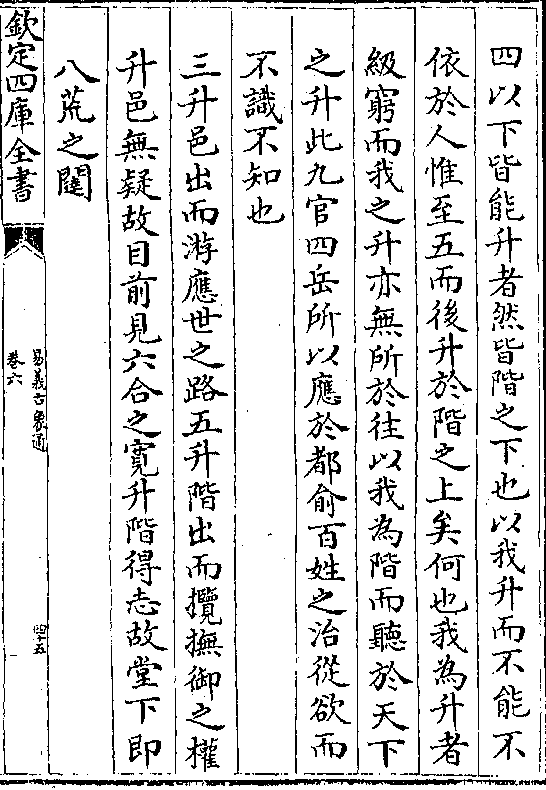 四以下皆能升者然皆階之下也以我升而不能不
依於人惟至五而後升於階之上矣何也我為升者
級窮而我之升亦無所於往以我為階而聽於天下
之升此九官四岳所以應於都俞百姓之治從欲而
不識不知也
三升邑出而游應世之路五升階出而攬撫御之權
升邑無疑故目前見六合之寬升階得志故堂下即
八荒之闥
欽定四庫全書
易義古象通
卷六
四十五